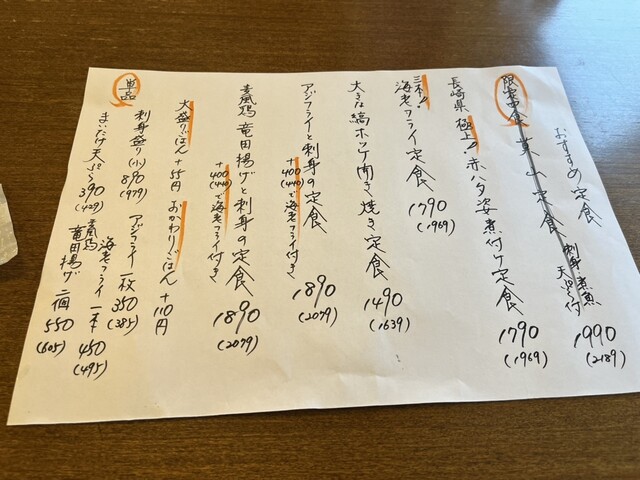 おすすめ定食
刺身 煮魚
天ぷら付
1990
(2189)
限定10食 葉山定食
長崎県極上!赤ハタ姿煮付け定食
1790
(1969)
三本!
海老フライ定食
1790
(1969)
大きな縞ホッケ開き焼き定食
1490
(1639)
アジフライと刺身の定食
1890
(2079)
+400
(440)で海老フライ付き
竜田揚げと刺身の定食
1890
(2079)
+400
(440)で海老フライ付き
大盛りごはん +55円 おかわりごはん +110円
単品
刺身盛り(小) 890
(979)
アジフライ 一枚 350
(385)
海老フライ 一本 450
(495)
まいたけ天ぷら 390
(429)
竜田揚げ 二個 550
(605)